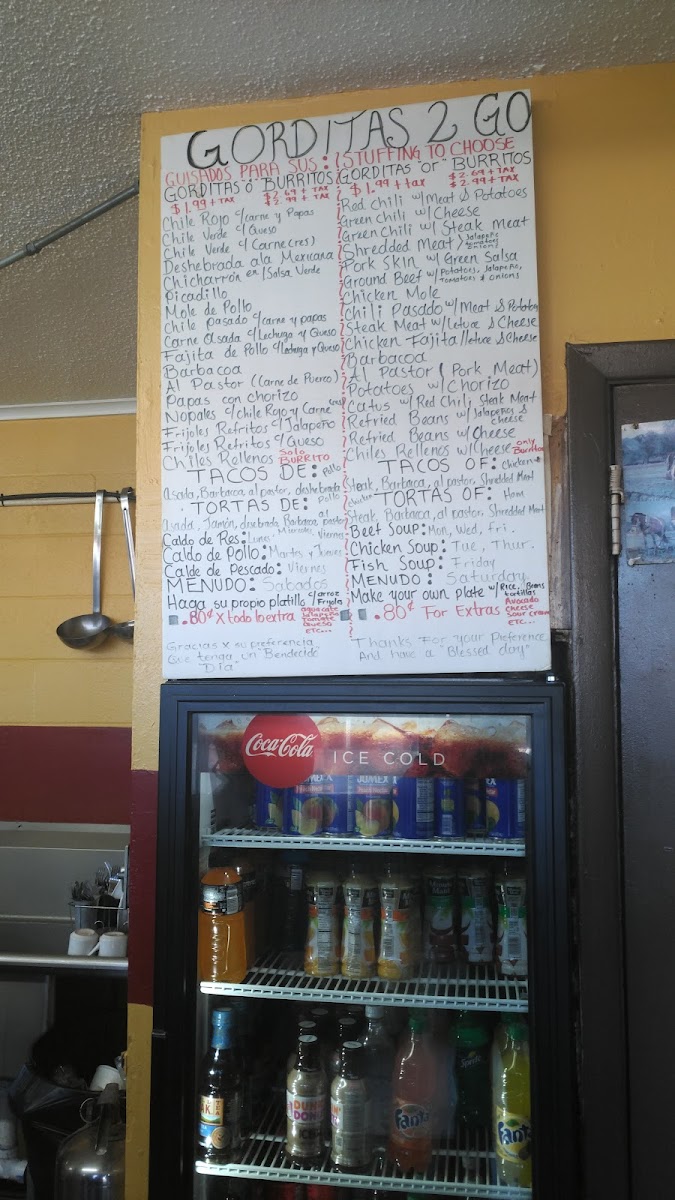 GORDITAS 2 GO
GUISADOS PARA SUS:
GORDITAS "Ó" BURRITOS
$1.99 + TAX
$2.69 + TAX
$2.99 + TAX
Chile Rojo c/carne y Papas
Chile Verde c/Queso
Chile Verde c/Carne (res)
Deshebrada ala Mexicana
Chicharrón en /Salsa Verde
Picadillo
Mole de Pollo
Chile pasado c/carne y papas
Carne Asada c/Lechuga y Queso
Fajita de Pollo c/Lechuga y Queso
Barbacoa
Al Pastor (Carne de Puerco)
Papas con chorizo
Nopales c/chile Rojo y Carne (res)
Frijoles Refritos c/Jalapeño
Frijoles Refritos c/Queso
Chiles Rellenos Solo BURRITO
TACOS DE: Pollo
Asada, Barbacoa, al pastor, deshebrada
TORTAS DE: Pollo
Asada, Jamón, desebrada, Barbacoa, al pastor
Caldo de Res: Lunes Miercoles, Viernes
Caldo de Pollo: Martes y Jueves
Calde de Pescado: Viernes
MENUDO: Sabados
Haga su propio platillo c/arroz /Frijoles
.80¢ X todo lo extra
aguacate
Jalapeño
Tomate
Queso
etc...
Gracias x su preferencia
Que tenga un "Bendecide
Dia"
STUFFING TO CHOOSE
GORDITAS "Or" BURRITOS
$1.99 + tax
$2.69 + TAX
$2.99 + TAX
Red chili w/Meat & Potatoes
Green chili w/Cheese
Green chili w/ Steak meat
Shredded Meat) Jalapeño Tomatoes Onions
Pork Skin w/Green Salsa
Ground Beef w/Potatoes, Jalapeño, Tomatoes & Onions
Chicken Mole
Chili Pasado w/Meat & Potatoes
Steak Meat w/Letuce & Cheese
Chicken Fajita /letuce & Cheese
Barbacoa
Al Pastor (Pork Meat)
Potatoes w/Chorizo
Catus w/Red Chili, Steak Meat
Refried Beans w/Jalapeños & cheese
Refried Beans w/Cheese
Chiles Rellenos w/Cheese only Burritos
TACOS OF: Chicken
Steak, Barbaca, al pastor, Shredded Meat
Chicken TORTAS OF: Ham
Steak, Barbaca, al pastor, Shredded Meat
Beef Soup: Mon, Wed, Fri.
Chicken Soup: Tue, Thur.
Fish Soup: Friday
MENUDO: Saturday
Make your own plate w/Rice, Beans tortillas
.80¢ For Extras
Avocado
cheese
sour cream
etc...
Thanks For your Preference
And have a "Blessed day"
Coca-Cola ICE COLD
JUMEX
DUNKIN'
DONUTS
Sprite
Fanta
Fanta